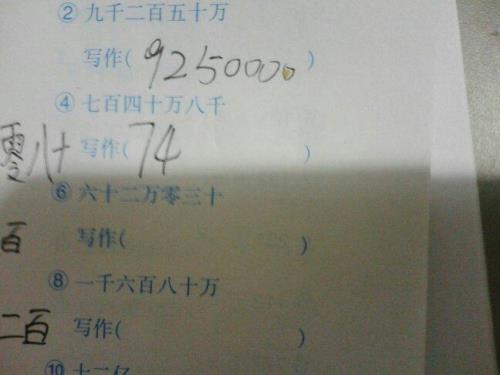 ② 九千二百五十万
写作( 9250000 )
④ 七百四十万八千
零八十 写作( 74 )
⑥ 六十二万零三十
百 写作( )
⑧ 一千六百八十万
二百 写作( )
⑩ 十二亿